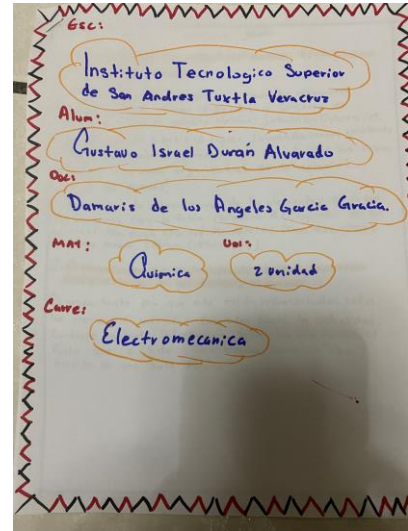 Esc:
Instituto Tecnologico Superior
de San Andres Tuxtla Veracruz
Alum:
Gustavo Israel Durán Alvarado
Doc:
Damaris de los Angeles Garcia Gracia.
MAT: Uni:
Quimica 2 unidad
Carre:
Electromecanica